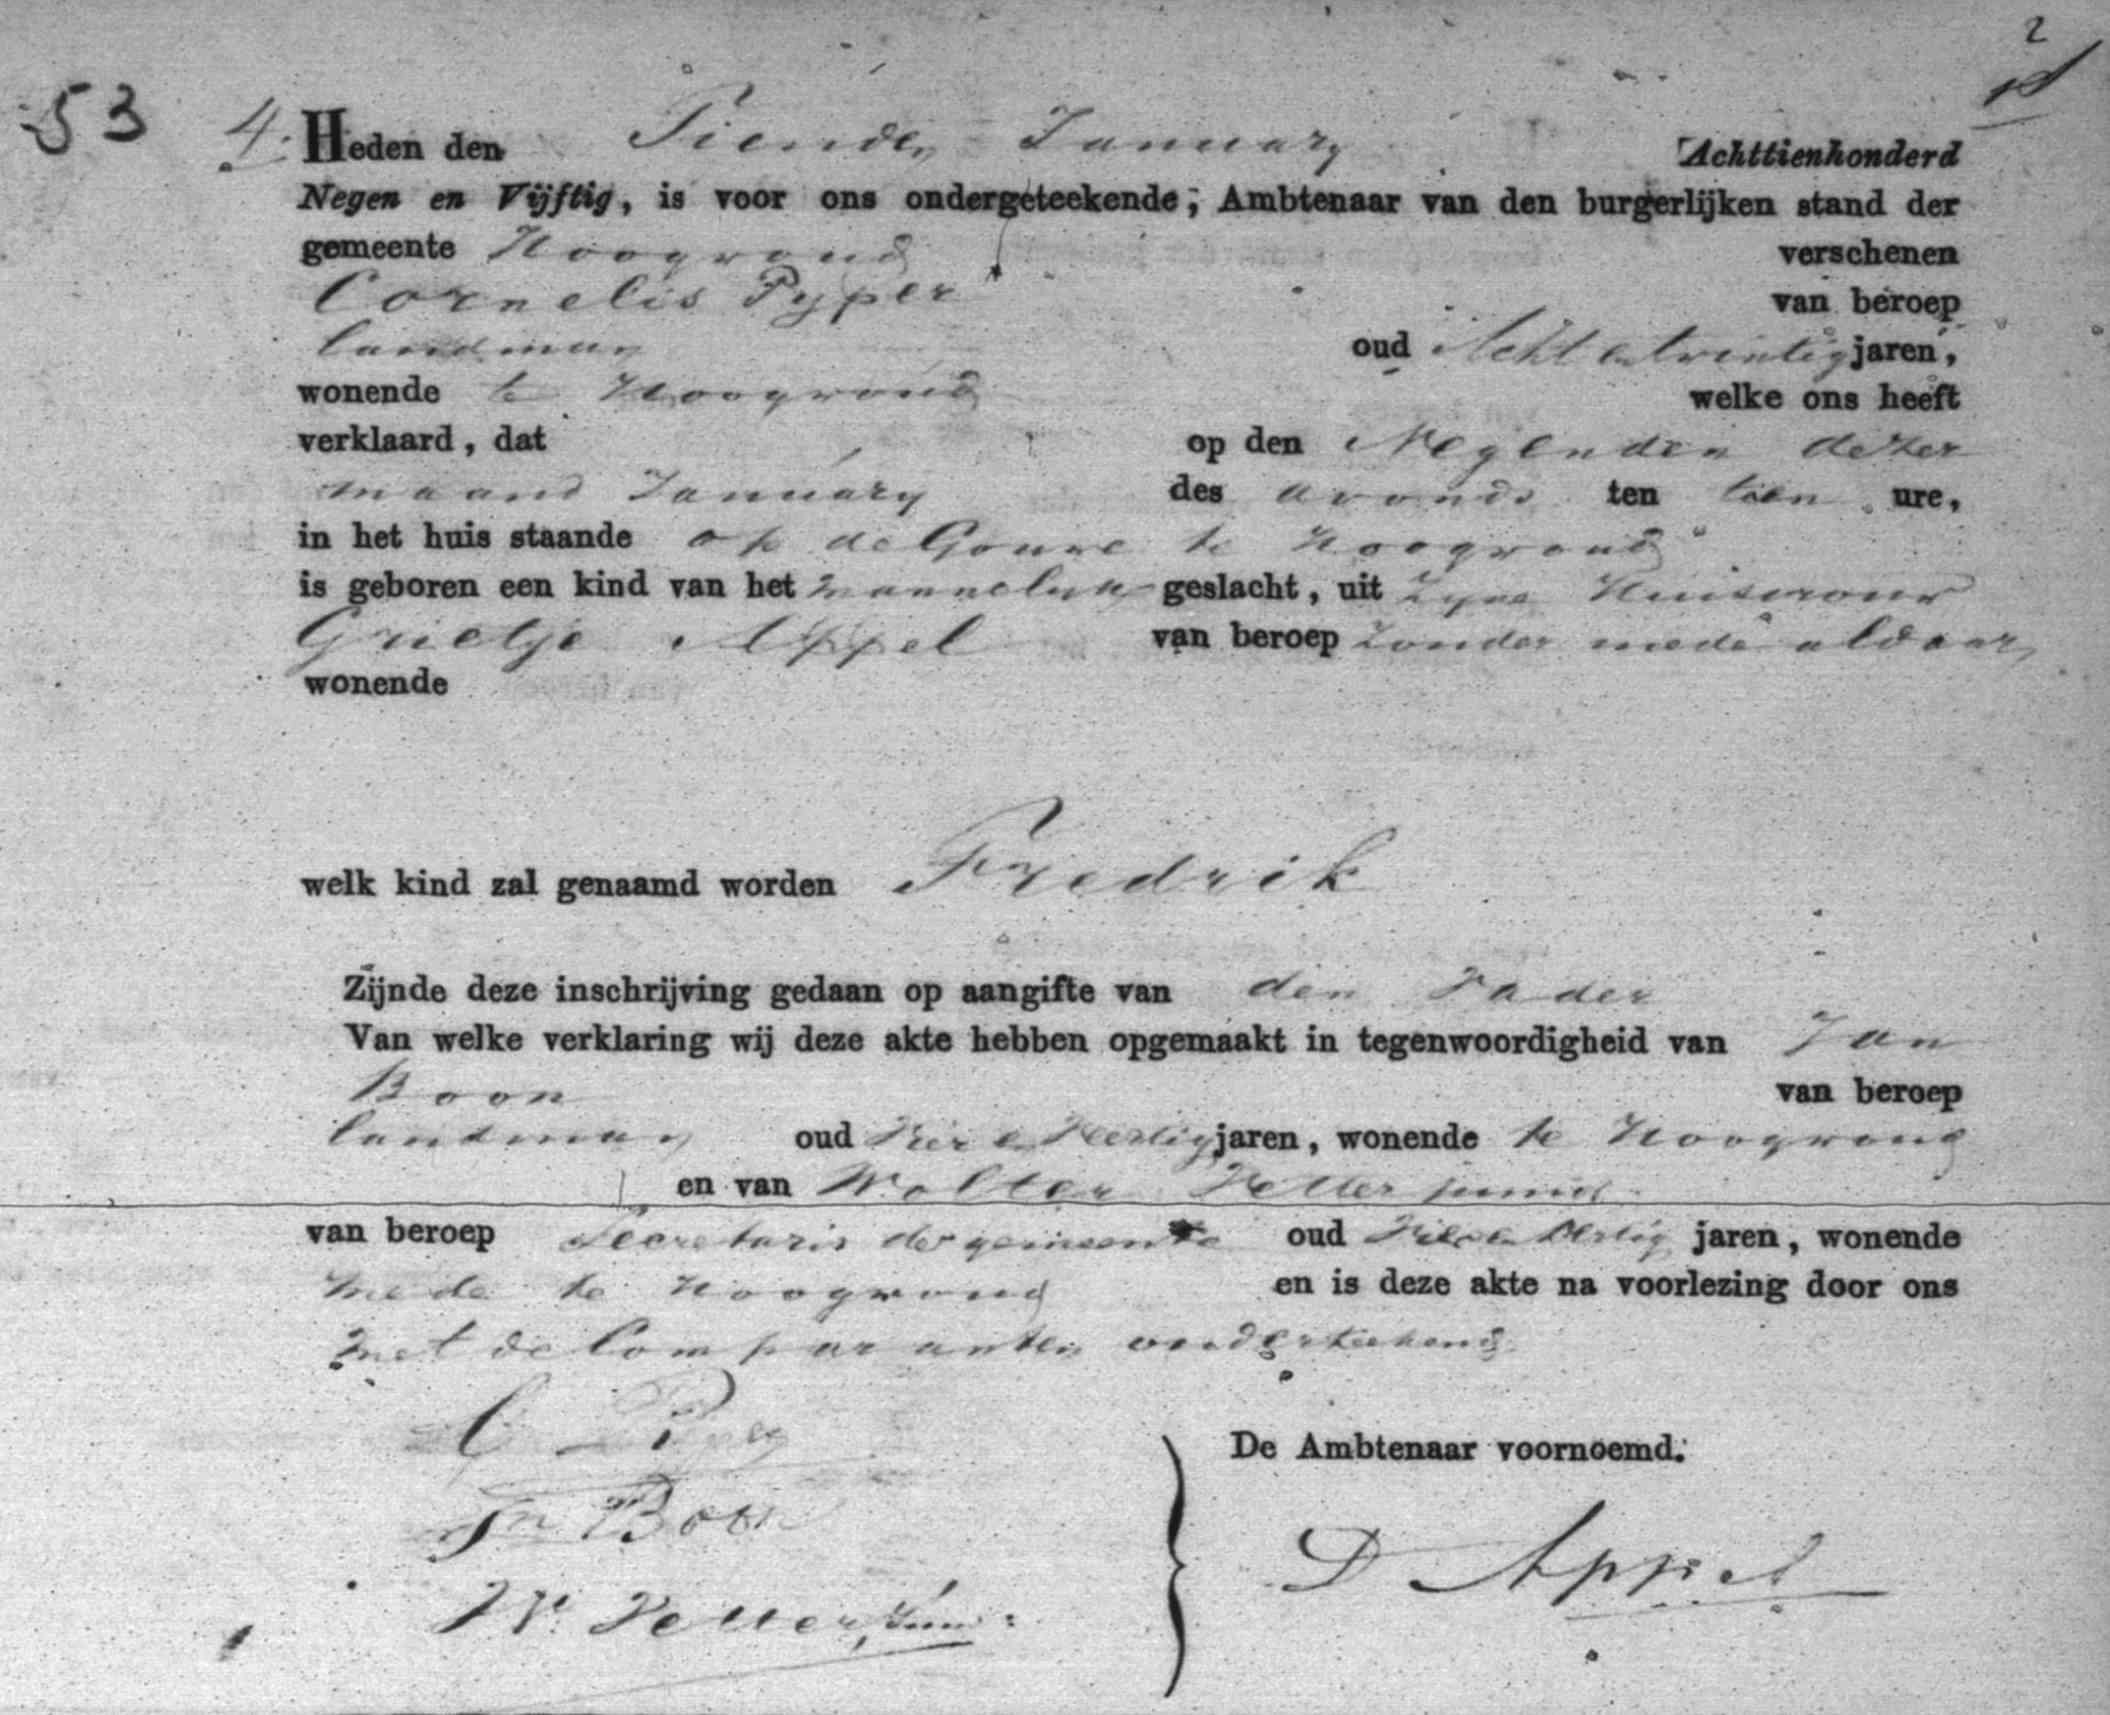 2
53
4. Heden den Tienden January Achttienhonderd
Negen en Vijftig, is voor ons ondergeteekende, Ambtenaar van den burgerlijken stand der
gemeente Hoogwoud verschenen
Cornelis Pyper van beroep
landman oud Acht en twintig jaren,
wonende te Hoogwoud welke ons heeft
verklaard, dat op den Negenden dezer
maand January des avonds ten tien ure,
in het huis staande op de Gouwe te Hoogwoud
is geboren een kind van het mannelyk geslacht, uit zyne Huisvrouw
Grietje Appel van beroep zonder mede aldaar
wonende
welk kind zal genaamd worden Fredrik
Zijnde deze inschrijving gedaan op aangifte van den Vader
Van welke verklaring wij deze akte hebben opgemaakt in tegenwoordigheid van Jan
Boon van beroep
landman oud Vier en Veertig jaren, wonende te Hoogwoud
en van Wolter Vetter junior
van beroep Secretaris der gemeente oud jaren, wonende
mede te Hoogwoud en is deze akte na voorlezing door ons
met de Comparanten onderteekend
C Pyper
Jn Boon
De Ambtenaar voornoemd.
W. Vetter, Junr:
D Appel